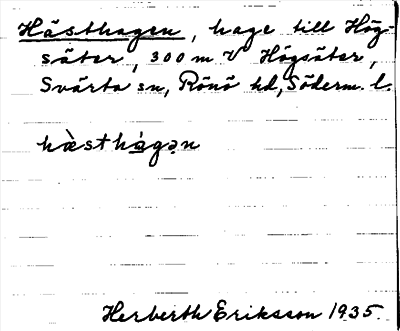 Hästhagen, hage till Hög-
säter, 300 m V Högsäter,
Svärta sn, Rönö hd, Söderm. l.
hàsthágən
Herberth Eriksson 1935.